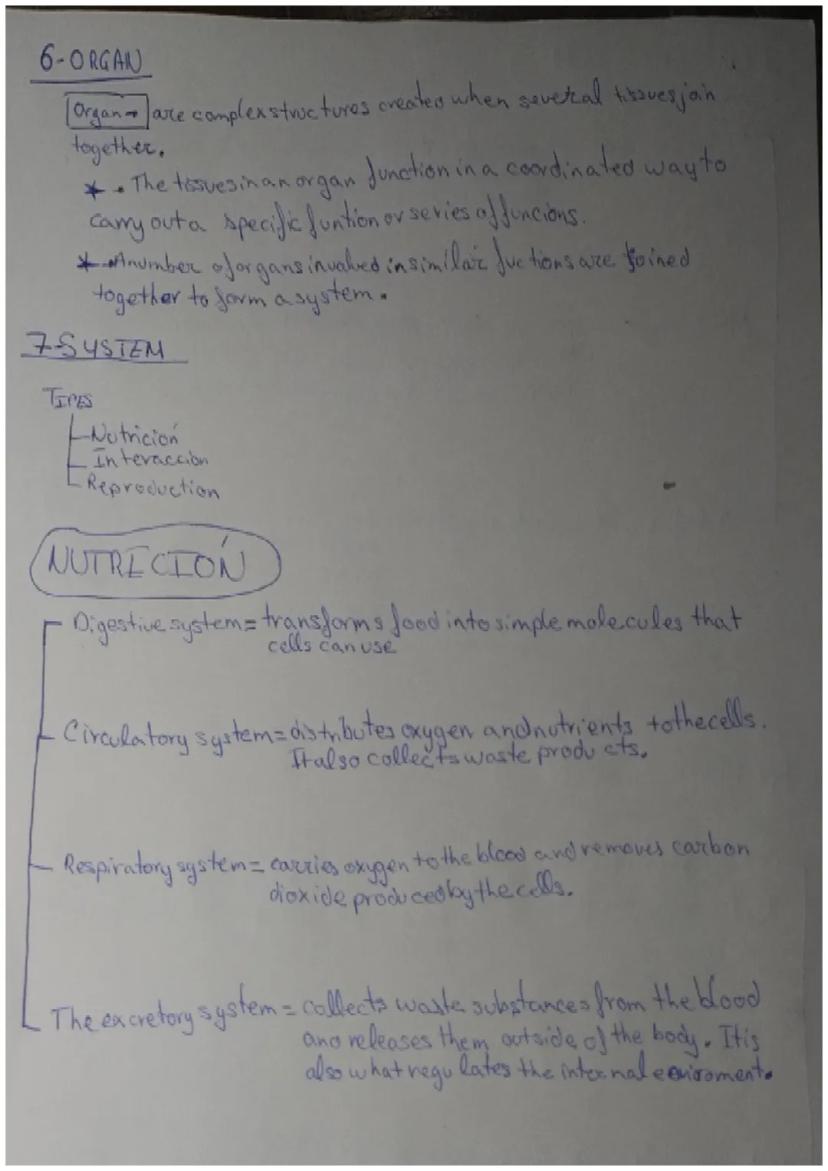 6-ORGAN
Organ→ are complex structures created when several tissues join
together.
* • The tissues in an organ function in a coordinated way to
carry out a specific funtion or series of funcions.
* • A number of organs involved in similar fuctions are joined
together to form a system.
7-SYSTEM
TIPES
Nutrición
Interacción
Reproduction
NUTRICIÓN
Digestive system = transforms food into simple molecules that
cells can use
Circulatory system = distributes oxygen and nutrients to the cells.
It also collects waste products.
Respiratory system = carries oxygen to the blood and removes carbon
dioxide produced by the cells.
The excretory system = collects waste substances from the blood
and releases them outside of the body. It is
also what regulates the internal enviroment.